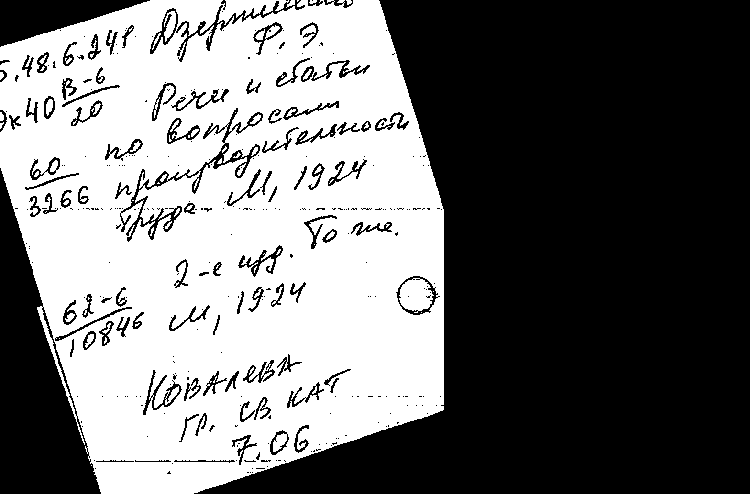 Б.48.6.241 Дзержинский
Ф. Э.
Эк40 В-6/20 Речи и статьи
по вопросами
60/3266 производительности
труда. М, 1924
2-е изд. То же.
62-6/10846 М, 1924
КОВАЛЕВА
ГР. СВ. КАТ
7.06